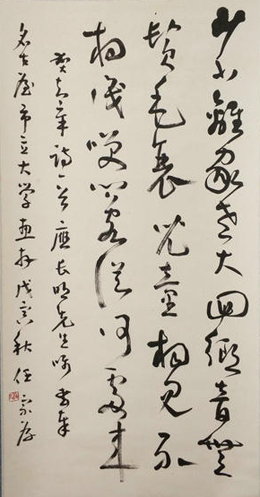 少小離家老大回鄉音無
鬢毛衰兒童相見不
相識笑問客從何處來
賀知章詩一首應長明先生嘱書奉
名古屋市立大学惠存戊寅秋任宗